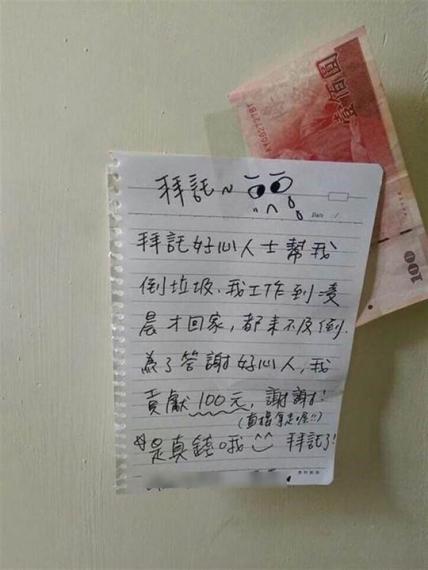 壹佰圓
100
拜託~
Date
拜託好心人士幫我
倒垃圾、我工作到凌
晨才回家，都來不及倒.
為了答謝好心人，我
貢獻100元，謝謝!
(直接拿走喔!!)
是真錢哦 拜託了!